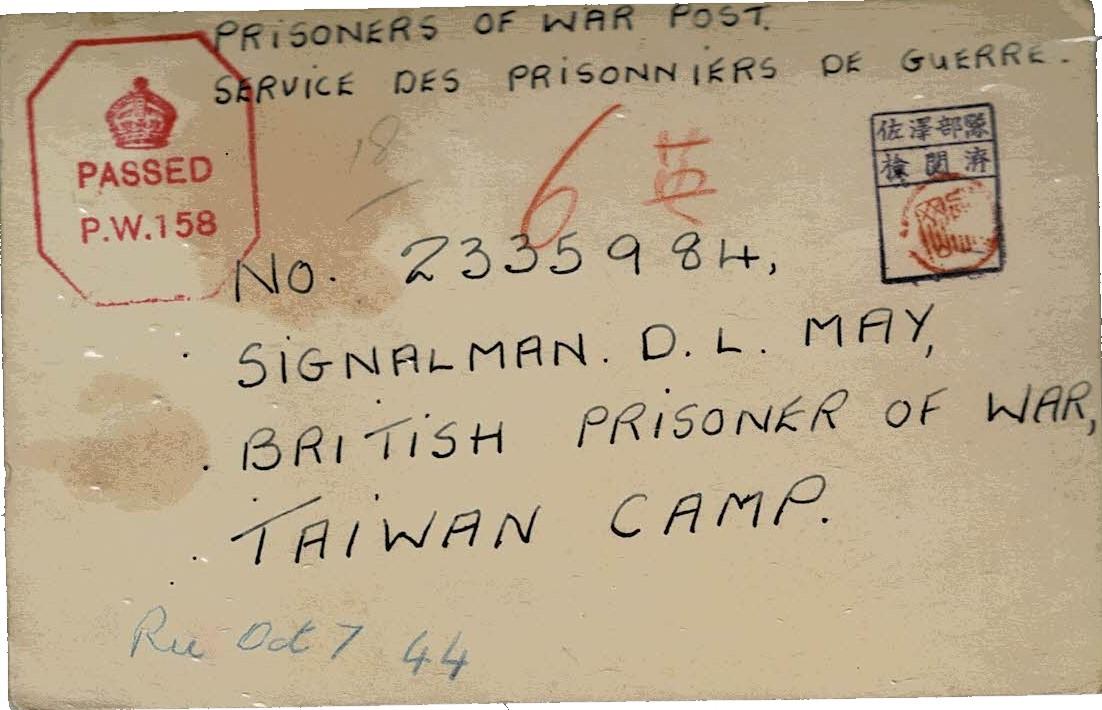 PRISONERS OF WAR POST.
SERVICE DES PRISONNIERS DE GUERRE.
PASSED
P.W.158
18
6 英
佐澤部隊
検閲済
No. 2335984,
SIGNALMAN. D. L. MAY,
BRITISH PRISONER OF WAR,
TAIWAN CAMP.
Oct 7 44